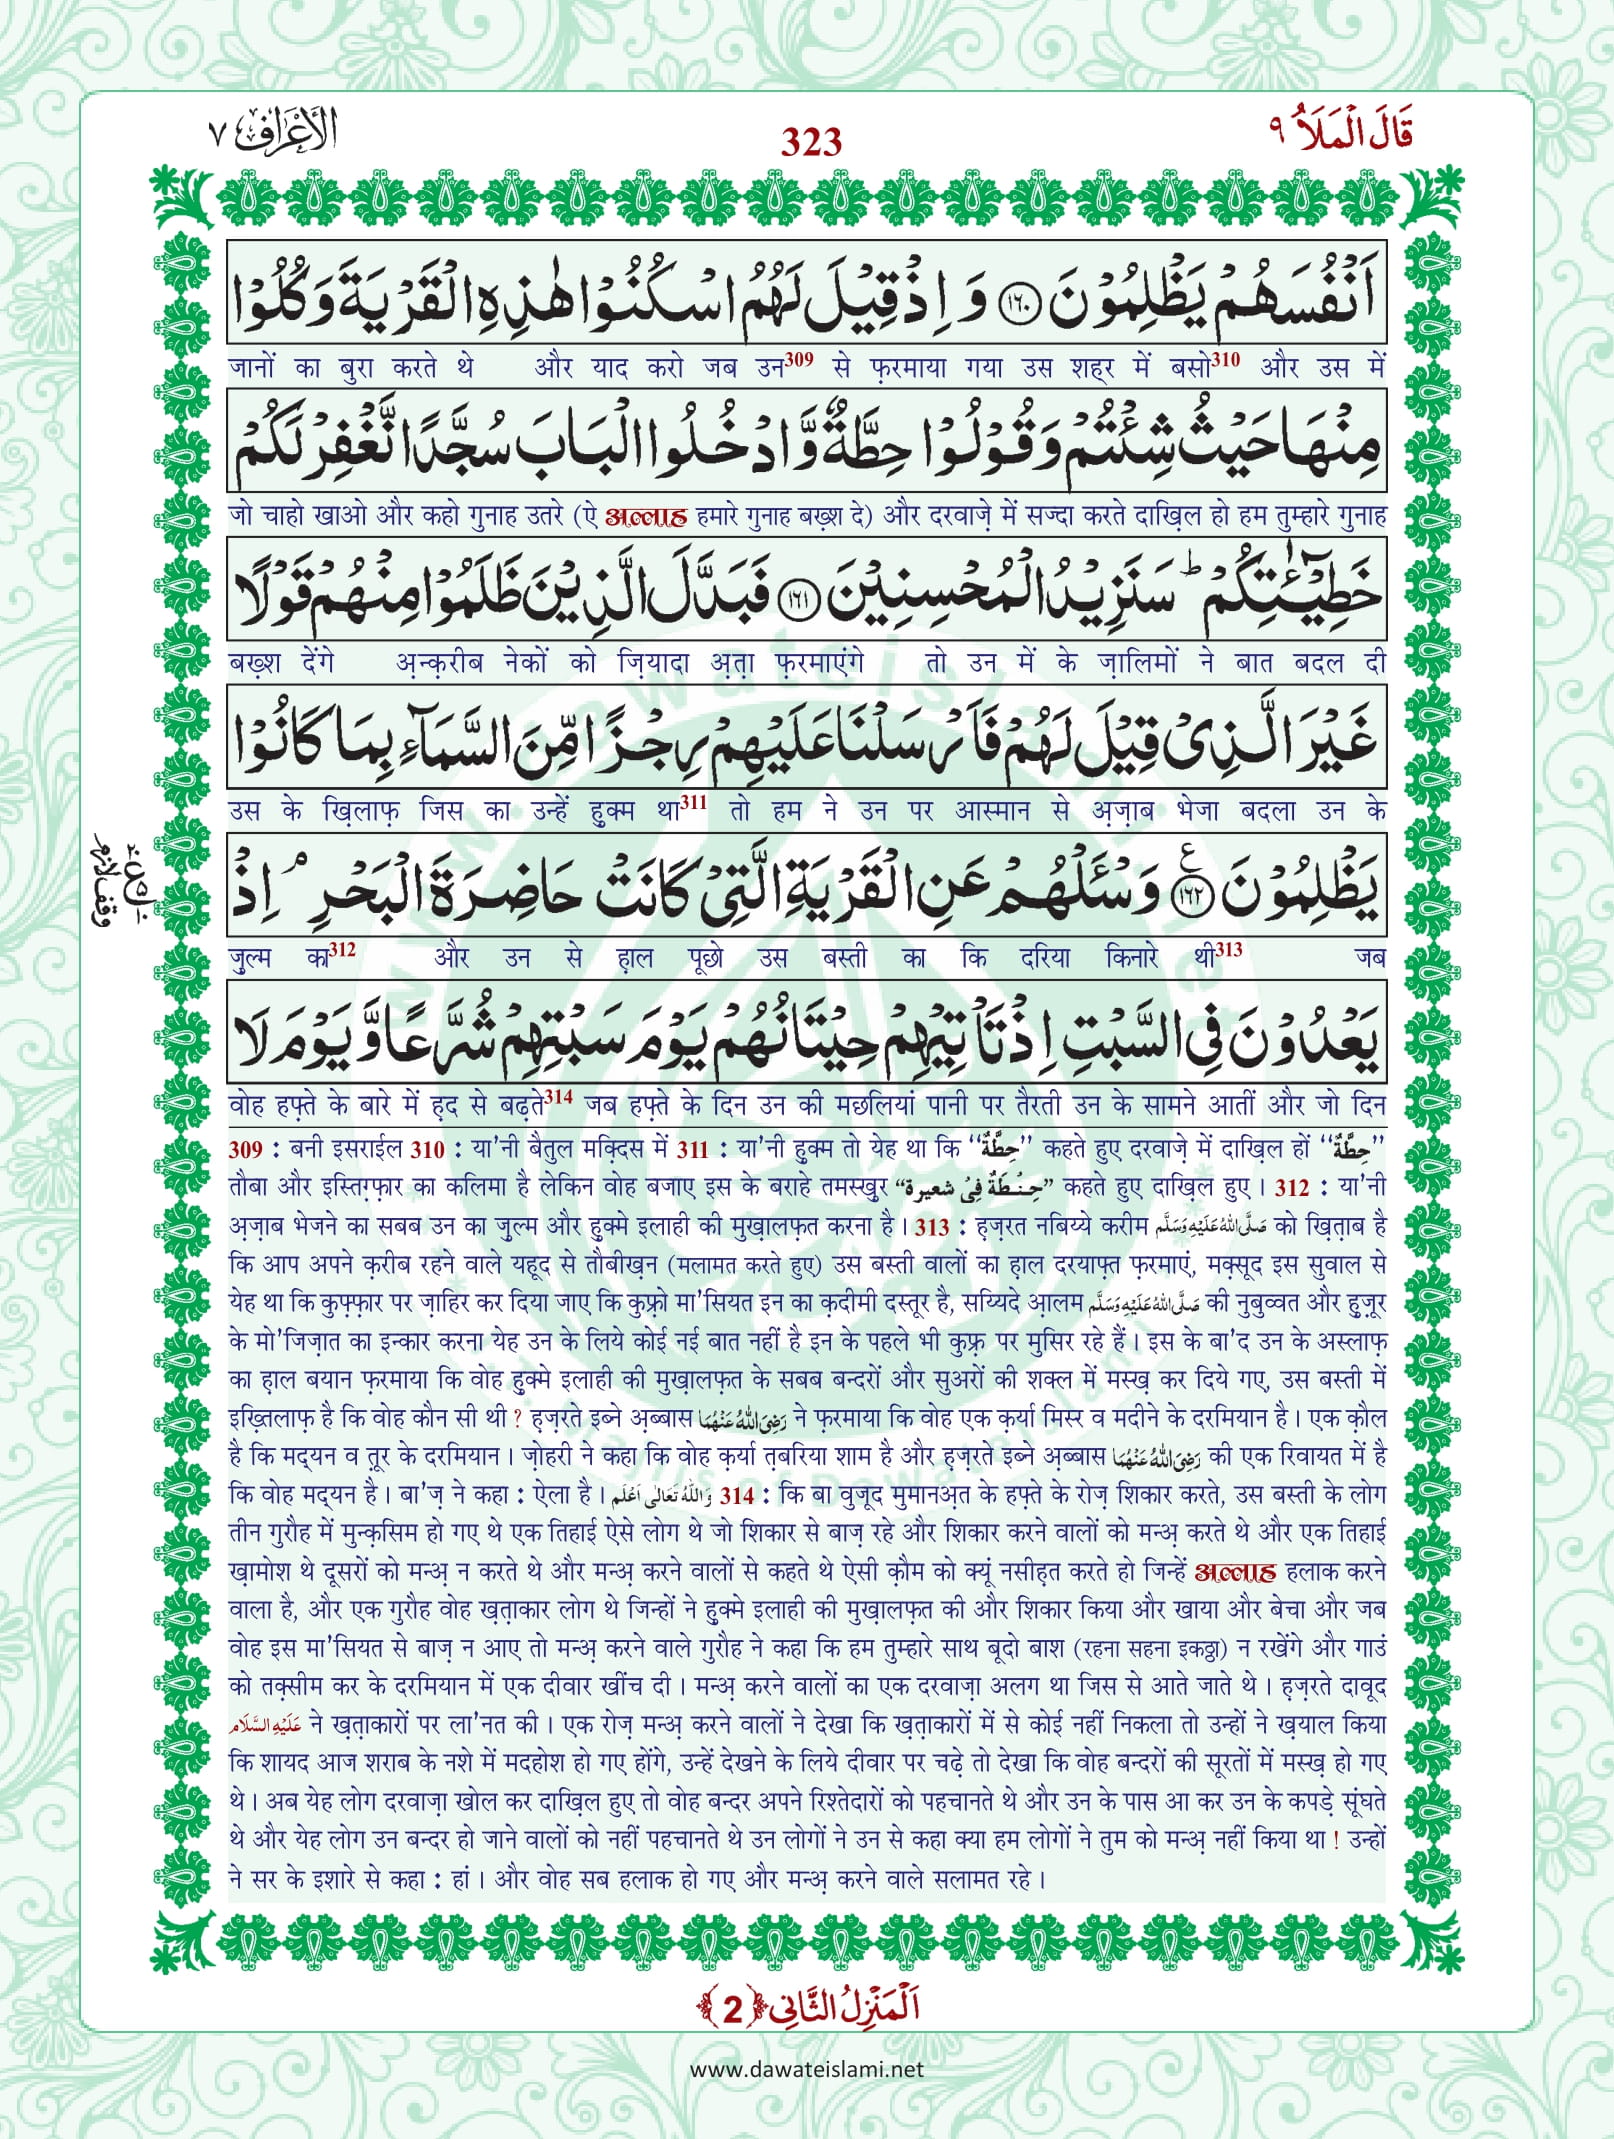 الأعراف ٧
323
قَالَ الْمَلَاُ ٩
اَنْفُسَهُمْ يَظْلِمُوْنَ ﴿١٦٠﴾ وَ اِذْ قِيْلَ لَهُمُ اسْكُنُوْا هٰذِهِ الْقَرْيَةَ وَ كُلُوْا
जानों का बुरा करते थे और याद करो जब उन309 से फ़रमाया गया उस शह्‌र में बसो310 और उस में
مِنْهَا حَيْثُ شِئْتُمْ وَ قُوْلُوْا حِطَّةٌ وَّ ادْخُلُوا الْبَابَ سُجَّدًا نَّغْفِرْ لَكُمْ
जो चाहो खाओ और कहो गुनाह उतरे (ऐ अल्लाह हमारे गुनाह बख़्श दे) और दरवाज़े में सज्दा करते दाख़िल हो हम तुम्हारे गुनाह
خَطِيْٓـٰٔتِكُمْ ؕ سَنَزِيْدُ الْمُحْسِنِيْنَ ﴿١٦١﴾ فَبَدَّلَ الَّذِيْنَ ظَلَمُوْا مِنْهُمْ قَوْلًا
बख़्श देंगे अ़न्क़रीब नेकों को ज़ियादा अ़त़ा फ़रमाएंगे तो उन में के ज़ालिमों ने बात बदल दी
غَيْرَ الَّذِيْ قِيْلَ لَهُمْ فَاَرْسَلْنَا عَلَيْهِمْ رِجْزًا مِّنَ السَّمَآءِ بِمَا كَانُوْا
उस के ख़िलाफ़ जिस का उन्हें हुक्म था311 तो हम ने उन पर आस्मान से अ़ज़ाब भेजा बदला उन के
يَظْلِمُوْنَ ﴿١٦٢﴾ ع وَسْـَٔلْهُمْ عَنِ الْقَرْيَةِ الَّتِيْ كَانَتْ حَاضِرَةَ الْبَحْرِ ۘ اِذْ
وقف لازم
ज़ुल्म का312 और उन से ह़ाल पूछो उस बस्ती का कि दरिया किनारे थी313 जब
يَعْدُوْنَ فِي السَّبْتِ اِذْ تَاْتِيْهِمْ حِيْتَانُهُمْ يَوْمَ سَبْتِهِمْ شُرَّعًا وَّ يَوْمَ لَا
वोह हफ़्ते के बारे में ह़द से बढ़ते314 जब हफ़्ते के दिन उन की मछलियां पानी पर तैरती उन के सामने आतीं और जो दिन
309 : बनी इसराईल 310 : या'नी बैतुल मक़्दिस में 311 : या'नी हुक्म तो येह था कि “حِطَّةٌ” कहते हुए दरवाज़े में दाख़िल हों “حِطَّةٌ”
तौबा और इस्तिग़्फ़ार का कलिमा है लेकिन वोह बजाए इस के बराहे तमस्ख़ुर “حِنْطَةٌ فِیْ شعیرة” कहते हुए दाख़िल हुए। 312 : या'नी
अ़ज़ाब भेजने का सबब उन का ज़ुल्म और हुक्मे इलाही की मुख़ालफ़त करना है। 313 : ह़ज़रत नबिय्ये करीम صَلَّى اللهُ عَلَيْهِ وَسَلَّم को ख़ित़ाब है
कि आप अपने क़रीब रहने वाले यहूद से तौबीख़न (मलामत करते हुए) उस बस्ती वालों का ह़ाल दरयाफ़्त फ़रमाएं, मक़्सूद इस सुवाल से
येह था कि कुफ़्फ़ार पर ज़ाहिर कर दिया जाए कि कुफ़्रो मा'सियत इन का क़दीमी दस्तूर है, सय्यिदे आ़लम صَلَّى اللهُ عَلَيْهِ وَسَلَّم की नुबुव्वत और हुज़ूर
के मो'जिज़ात का इन्कार करना येह उन के लिये कोई नई बात नहीं है इन के पहले भी कुफ़्र पर मुसिर रहे हैं। इस के बा'द उन के अस्लाफ़
का ह़ाल बयान फ़रमाया कि वोह हुक्मे इलाही की मुख़ालफ़त के सबब बन्दरों और सुअरों की शक्ल में मस्ख़ कर दिये गए, उस बस्ती में
इख़्तिलाफ़ है कि वोह कौन सी थी ? ह़ज़रते इब्ने अ़ब्बास رَضِیَ اللهُ عَنْهُمَا ने फ़रमाया कि वोह एक क़र्या मिस्र व मदीने के दरमियान है। एक क़ौल
है कि मद्‌यन व तूर के दरमियान। ज़ोहरी ने कहा कि वोह क़र्या त़बरिया शाम है और ह़ज़रते इब्ने अ़ब्बास رَضِیَ اللهُ عَنْهُمَا की एक रिवायत में है
कि वोह मद्‌यन है। बा'ज़ ने कहा : ऐला है। وَاللهُ تَعَالٰی اَعْلَم 314 : कि बा वुजूद मुमानअ़त के हफ़्ते के रोज़ शिकार करते, उस बस्ती के लोग
तीन गुरौह में मुन्क़सिम हो गए थे एक तिहाई ऐसे लोग थे जो शिकार से बाज़ रहे और शिकार करने वालों को मन्अ़ करते थे और एक तिहाई
ख़ामोश थे दूसरों को मन्अ़ न करते थे और मन्अ़ करने वालों से कहते थे ऐसी क़ौम को क्यूं नसीह़त करते हो जिन्हें अल्लाह हलाक करने
वाला है, और एक गुरौह वोह ख़त़ाकार लोग थे जिन्हों ने हुक्मे इलाही की मुख़ालफ़त की और शिकार किया और खाया और बेचा और जब
वोह इस मा'सियत से बाज़ न आए तो मन्अ़ करने वाले गुरौह ने कहा कि हम तुम्हारे साथ बूदो बाश (रहना सहना इकठ्ठा) न रखेंगे और गाउं
को तक़्सीम कर के दरमियान में एक दीवार खींच दी। मन्अ़ करने वालों का एक दरवाज़ा अलग था जिस से आते जाते थे। ह़ज़रते दावूद
عَلَيْهِ السَّلَام ने ख़त़ाकारों पर ला'नत की। एक रोज़ मन्अ़ करने वालों ने देखा कि ख़त़ाकारों में से कोई नहीं निकला तो उन्हों ने ख़याल किया
कि शायद आज शराब के नशे में मदहोश हो गए होंगे, उन्हें देखने के लिये दीवार पर चढ़े तो देखा कि वोह बन्दरों की सूरतों में मस्ख़ हो गए
थे। अब येह लोग दरवाज़ा खोल कर दाख़िल हुए तो वोह बन्दर अपने रिश्तेदारों को पहचानते थे और उन के पास आ कर उन के कपड़े सूंघते
थे और येह लोग उन बन्दर हो जाने वालों को नहीं पहचानते थे उन लोगों ने उन से कहा क्या हम लोगों ने तुम को मन्अ़ नहीं किया था ! उन्हों
ने सर के इशारे से कहा : हां। और वोह सब हलाक हो गए और मन्अ़ करने वाले सलामत रहे।
اَلْمَنْزِلُ الثَّانِي ﴿2﴾
www.dawateislami.net